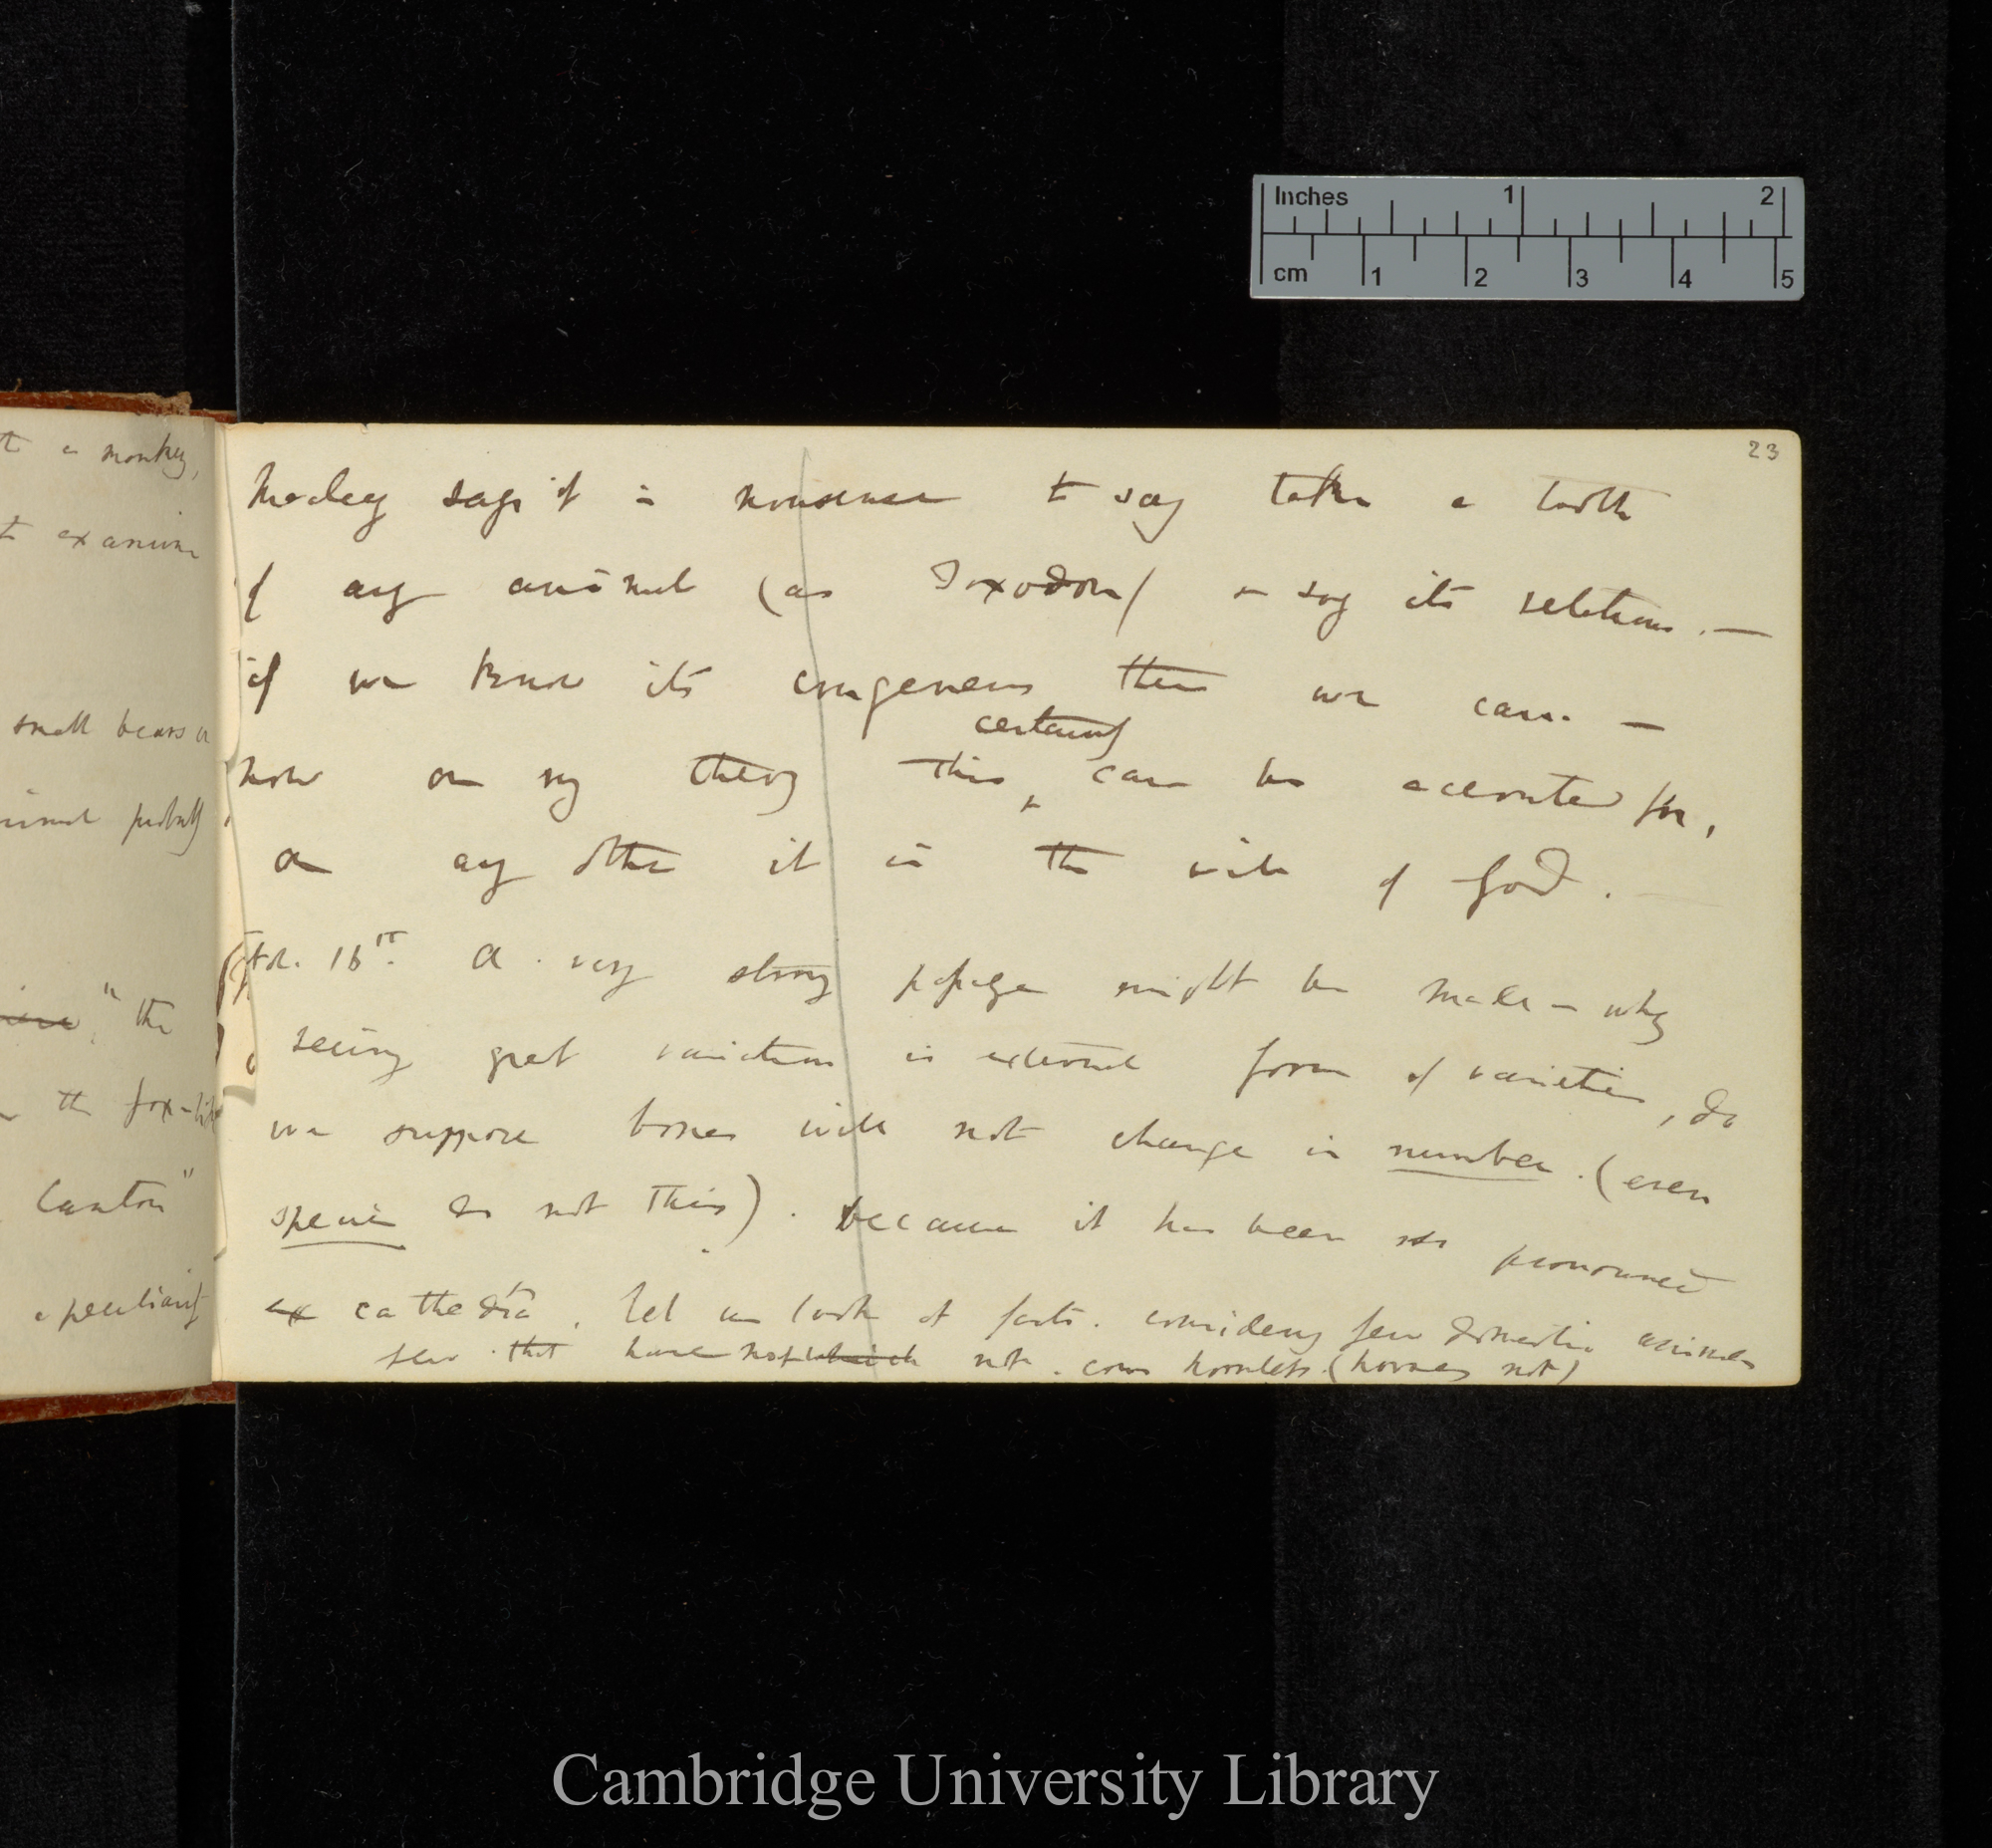 t a monkey,
t examine
small bears a
animal probably
" the
the fox-like
Canton"
a peculiarity
23
Macleay says it is nonsense to say take a tooth
of any animal (as Toxodon) & say its relations. —
if we know its congeners then we can. —
certainly
now on my theory this can be accounted for,
on any other it is the will of God.
Feb. 16th. A very strong passage might be made — why
seeing great variation in external form of varieties, do
we suppose bones will not change in number. (even
species do not this). because it has been so pronounced
ex cathedra. let us look at facts. considering few domestic animals
few that have not which not. cows hornless (horns not)
Inches 1 2
cm 1 2 3 4 5
Cambridge University Library